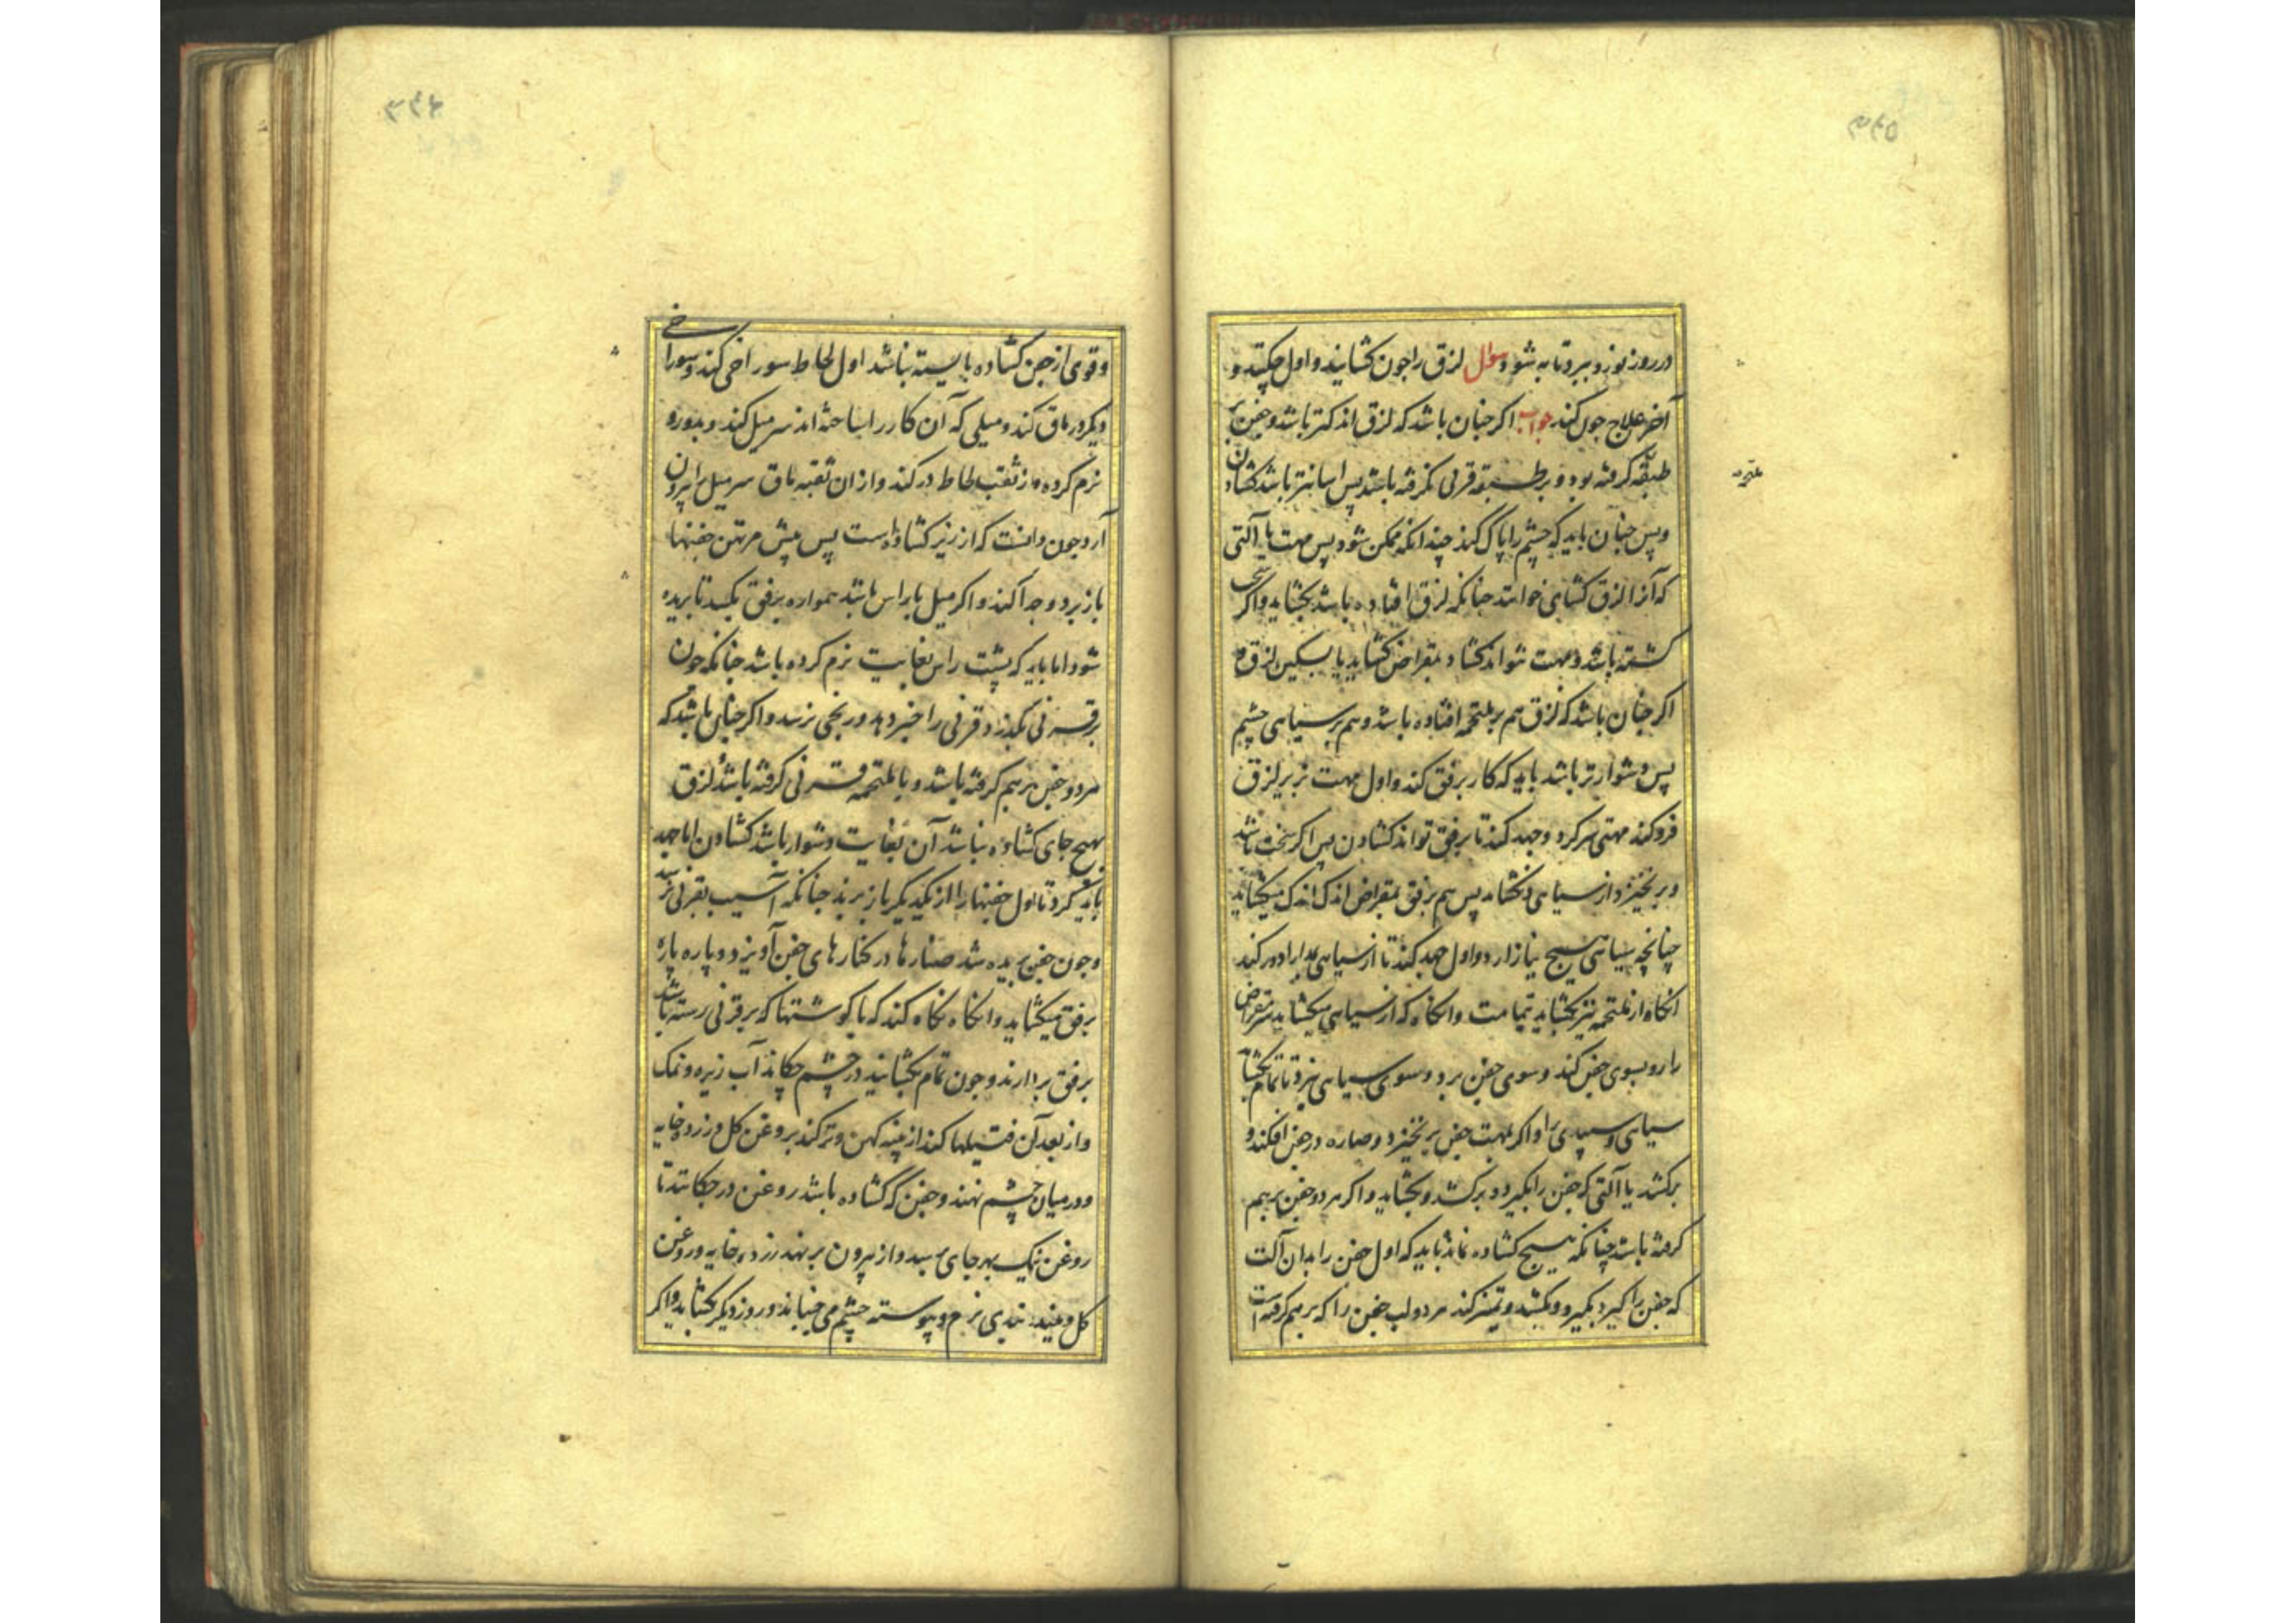 در روز نوزو ببرد تا به شود سؤال لزق را چون کشایند و اول چکنند و
آخر علاج چون کند جواب اکر چنان باشد که لزق اندکتر باشد و جفن بر
طبقه کرفته بود و بر طبقه قرنی نکرفته باشد پس اسانتر باشد کشادن
ملتحمه
و پس چنان باید که چشم را پاک کند چندانکه ممکن شود پس مهت یا آلتی
که آنرا لزق کشای خوانند چنانکه لزق افتاده باشد بکشاید و اکر سخت
کشته باشد و مهت نتواند کشاد بمقراض کشاید یا بسکین لزق و
اکر چنان باشد که لزق هم بر ملتحمه افتاده باشد و هم بر سیاهی چشم
پس دشوارتر باشد باید که کار برفق کند و اول مهت بزیر لزق
فرو کند مهتی سر کرد و جهد کند تا برفق تواند کشادن پس اکر سخت باشد
و برنخیزد از سیاهی و نکشاید پس هم برفق بمقراض اندک اندک میکشاید
چنانچه سیاهی هیچ نیازارد و اول جهد کند تا از سیاهی دور کند
انکاه از ملتحمه نیز بکشاید بتمامت و انکاه که از سیاهی میکشاید سر مقراض
را رو بسوی جفن کند و سوی جفن برد و سوی سیاهی نبرد تا تمام بکشاید
سیاهی و سپیدی را و اکر بمهت جفن برنخیزد و صناره در جفن افکند و
برکشد یا آلتی که جفن را بکیرد و برکشد و بکشاید و اکر هر دو جفن بر هم
کرفته باشد چنانکه هیچ کشاده نماند باید که اول جفن را بدان آلت
که جفن را کیرد بکیرد و بکشد و تمیز کند هر دو لب جفن را که بر هم کرفته است
و قوی از جفن کشاده یا بسته نباشد اول لحاظ سوراخی کند و سوراخی
دیکر در ماق کند و میلی که آن کار را ساخته اند سر میل کند و
نرم کرده و از ثقب لحاظ در کند و از ان ثقبه ماق سر میل را بیرون
آرد چون دانست که از زیر کشاده است پس پیش مرتهن جفنها
باز برد و جدا کند و اکر میل یا براس باشد همواره برفق بکشد تا بریده
شود اما باید که پشت راس بغایت نرم کرده باشد چنانکه چون
بر قرنی بکذرد قرنی را خبر دهد و رنجی نرسد و اکر چنان باشد که
هر دو جفن بر هم کرفته باشد و با ملتحمه و قرنی کرفته باشد لزق
بهیچ جای کشاده نباشد آن بغایت دشوار باشد کشادن اما جهد
باید کرد تا اول جفنها را از یکدیکر باز برند چنانکه آسیب بقرنی نرسد
و چون جفن بریده شد صنارها در کنارهای جفن آویزد و پاره پاره
برفق میکشاید و انکاه نکاه کند که با کوشتها که بر قرنی رسته باشد
برفق بردارند و چون تمام بکشایند در چشم چکاند آب زیره و نمک
و از بعد آن فتیلها کند از پنبه کهن و تر کند بروغن کل و زرده خایه
و در میان چشم نهند و جفن که کشاده باشد روغن در چکانند تا
روغن نیک بهر جای برسد و از بیرون بر نهند زرده خایه و روغن
کل و بندی نرم و پیوسته چشم می جنباند و روز دیکر بکشاید و اکر